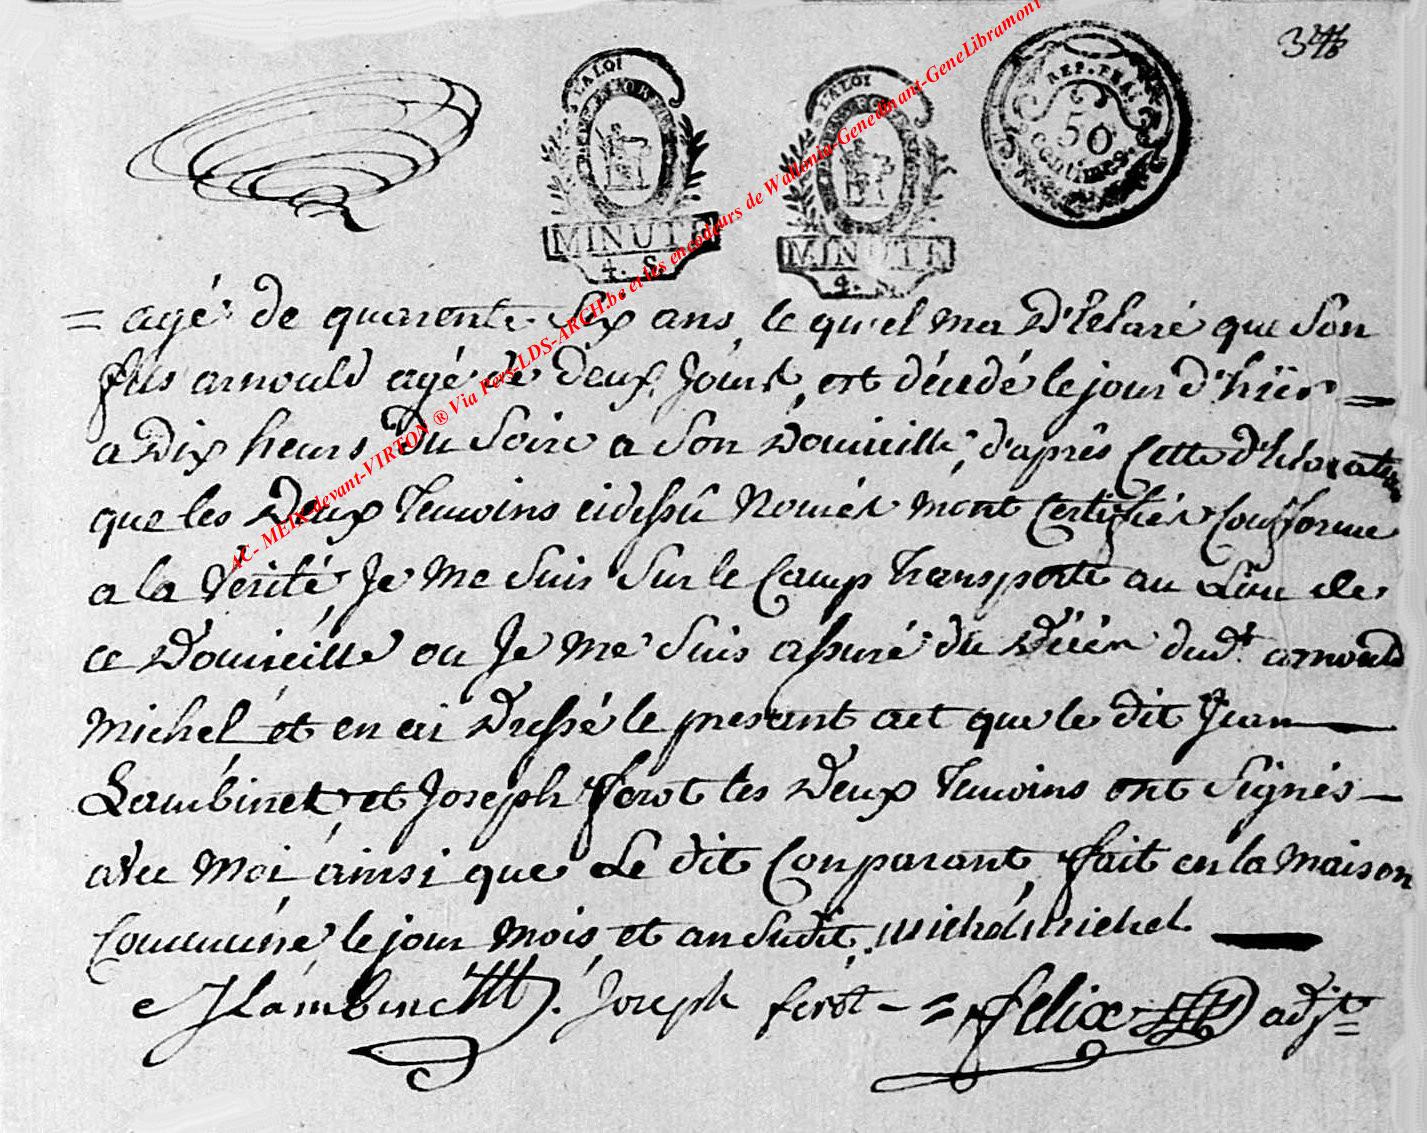 LA LOI
MINUTE
4. S.
LA LOI
MINUTE
4. S.
REP. FRA.
50
Centimes.
AC- MEIX-devant-VIRTON ® Via Pers-LDS-ARCH.be et les encodeurs de Wallonia-Genedinant-GeneLibramont
= agé de quarente Six ans, le qu'el ma D'Eclaré que Son
fils arnould agé de deux Jours, est décédé le jour d'hïer =
a Dix heurs Du Soire a Son Domicille, d'aprês Cette d'Eclaration
que les Deux temoins cidessû Només mont Certifiés Confforme
a la Verité, Je me Suis Sur le Camp transporté au Lieu de
ce Domicille ou Je me Suis assuré du Décés dudt. arnould
Michel et en ai Dressé le present act que le dit Jean
Lambinet, et Joseph ferot les Deux temoins ont Signés —
avec Moi ainsi que Le dit Conparant, fait en la Maison
Commune, le jour Mois, et an Sudit. michel michel
JLambinet. Joseph ferót - = felix adjt=